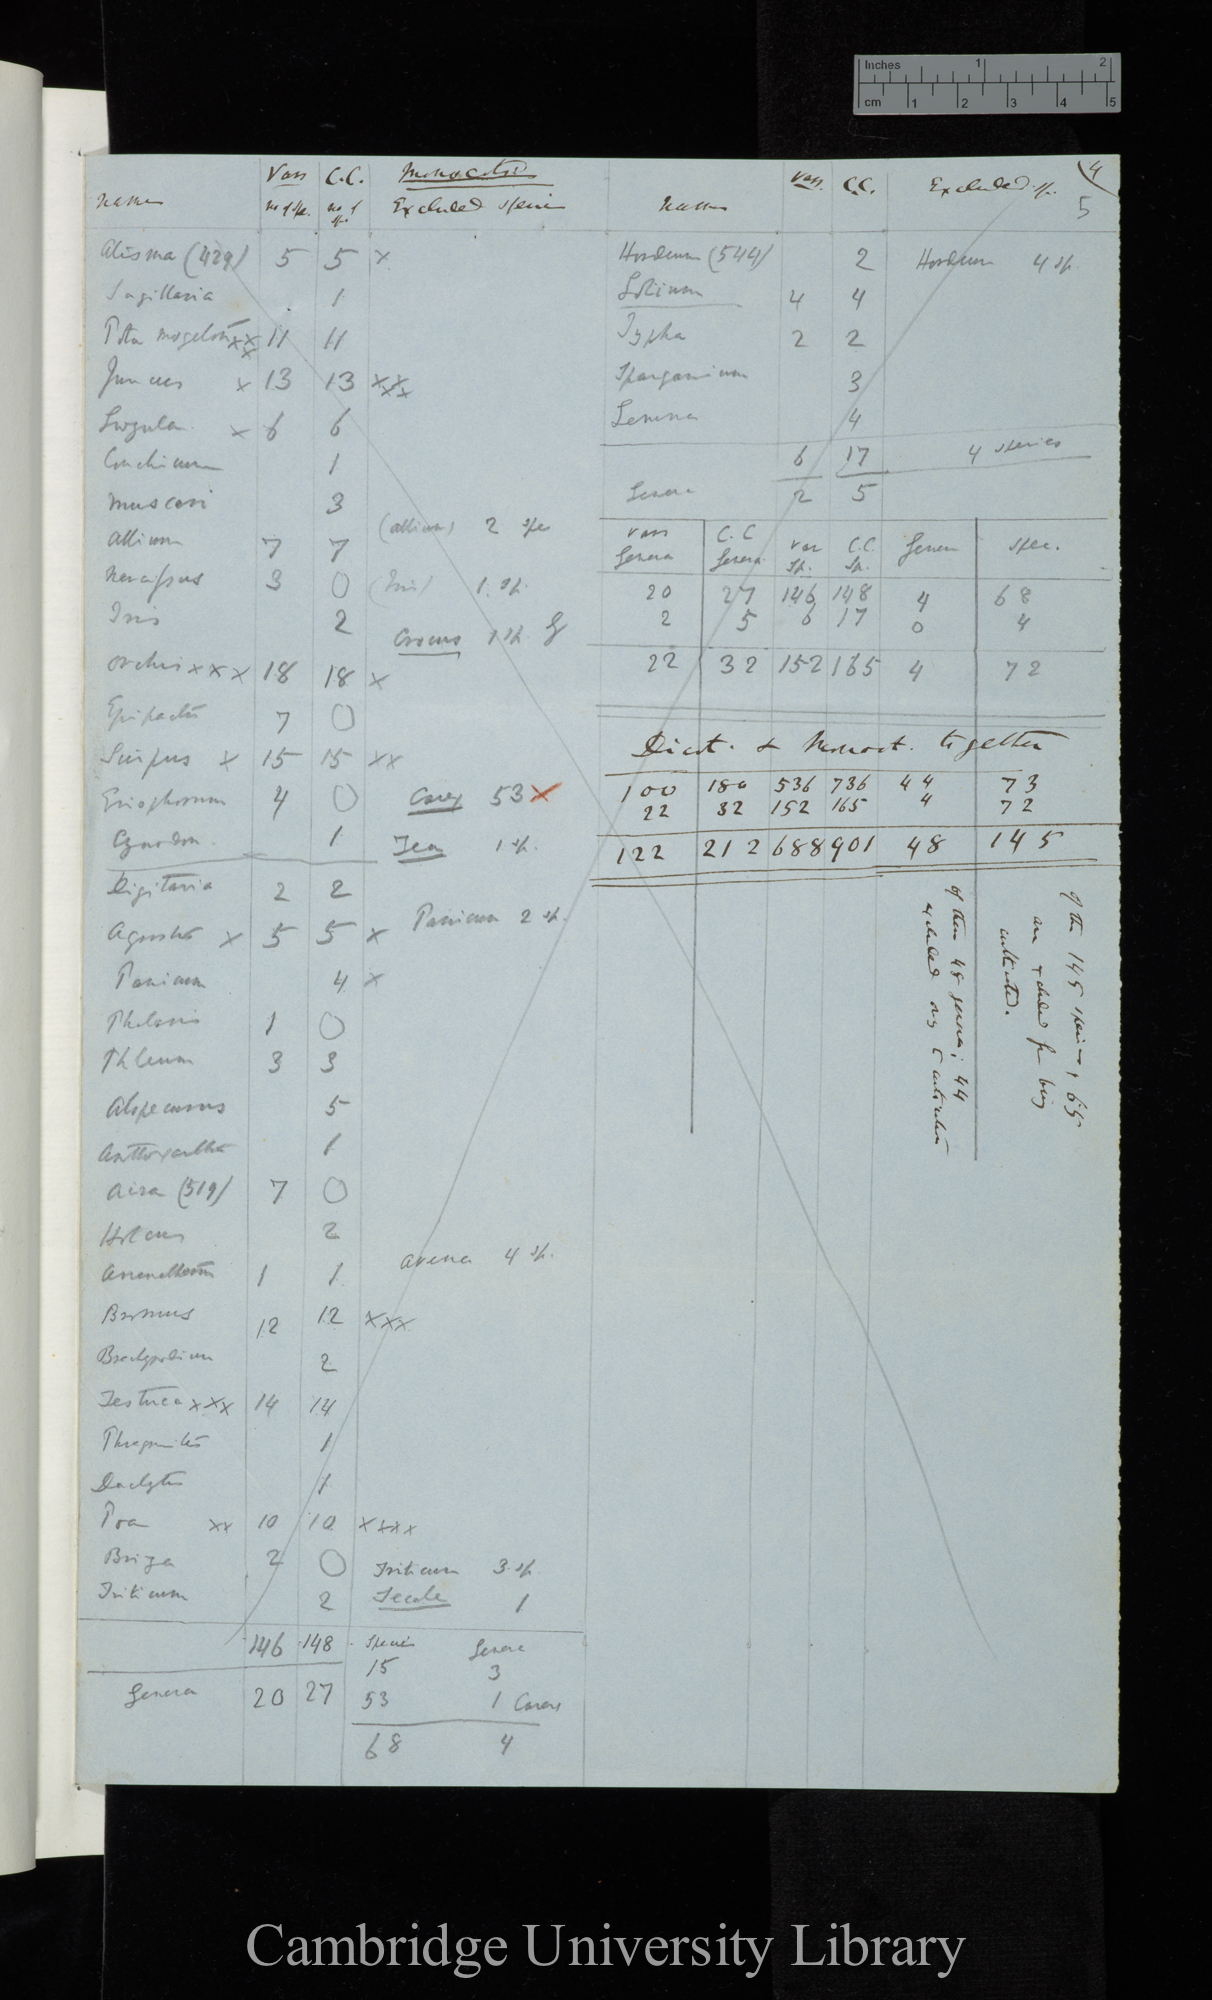 Inches 1 2
cm 1 2 3 4 5
4
5
Vars C.C. Monocots
names no of sp. no. of sp. Excluded species
Alisma (429) 5 5 x
Sagittaria 1
Potamogeton xxx 11 11
Juncus x 13 13 xxx
Luzula x 6 6
1
Muscari 3
Allium 7 7 (Allium) 2 spe
Narcissus 3 0 (Iris) 1. sp.
Iris 2 Crocus 1 sp. G
Orchis xxx 18 18 x
Epipactis 7 0
Scirpus x 15 15 xx
Eriophorum 4 0 Carex 53 x
Cynodon 1 Zea 1 sp.
Digitaria 2 2
Agrostis x 5 5 x Panicum 2 sp.
Panicum 4 x
Phalaris 1 0
Phleum 3 3
Alopecurus 5
Anthoxanth 1
Aira (519) 7 0
Holcus 2
Arrenatherum 1 1 Avena 4 sp.
Bromus 12 12 xxx
Brachypodium 2
Festuca xxx 14 14
Phragmites 1
Dactylis 1
Poa xx 10 10 xxxx
Briza 2 0 Triticum 3 sp
Triticum 2 Secale 1
146 148 Species Genera
15 3
Genera 20 27 53 1 Carex
68 4
names Vars. C.C. Excluded sp.
Hordeum (544) 2 Hordeum 4 sp.
Lolium 4 4
Typha 2 2
Sparganium 3
Lemna 4
6 17 4 species
Genera 2 5
Vars Genera C.C Genera Var Sp. C.C. Sp. Genera Spec.
20 27 146 148 4 68
2 5 6 17 0 4
22 32 152 165 4 72
Dicot. & Monocot. together
100 180 536 736 44 73
22 32 152 165 4 72
122 212 688 901 48 145
of the 145 species, 65
are excluded for being
cultivated.
of these 48 genera; 44
excluded
Cambridge University Library